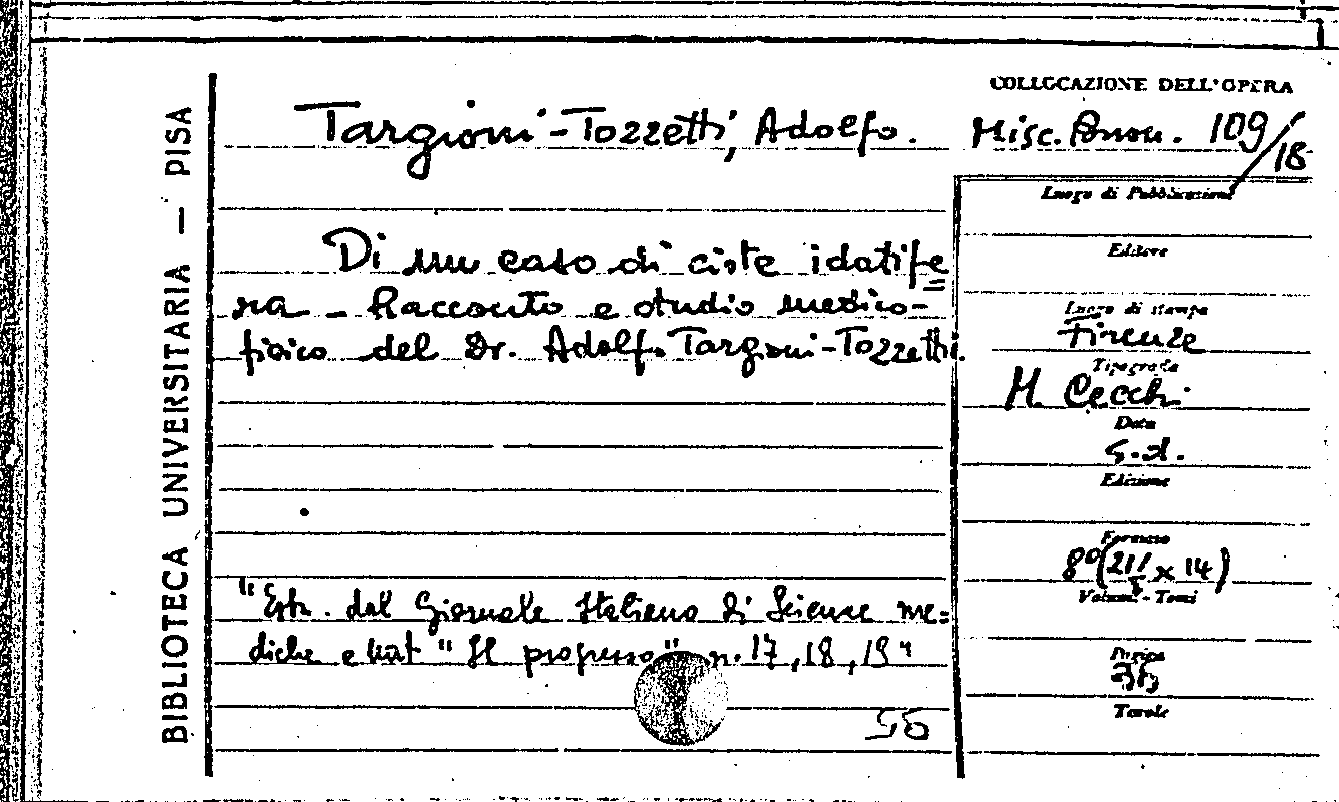 BIBLIOTECA UNIVERSITARIA — PISA
Targioni-Tozzetti, Adolfo.
Di un caso di ciste idatife
ra - Racconto e studio medico-
fisico del Dr. Adolfo Targioni-Tozzetti.
"Estr. dal Giornale Italiano di Scienze me=
diche e nat "Il progresso" n. 17, 18, 19"
COLLOCAZIONE DELL'OPERA
Misc. 109/18
Luogo di Pubblicazione
Editore
Luogo di stampa
Firenze
Tipografia
M. Cecchi
Data
s.d.
Edizione
Formato
8º (21 x 14)
Volumi - Tomi
Pagine
Tavole